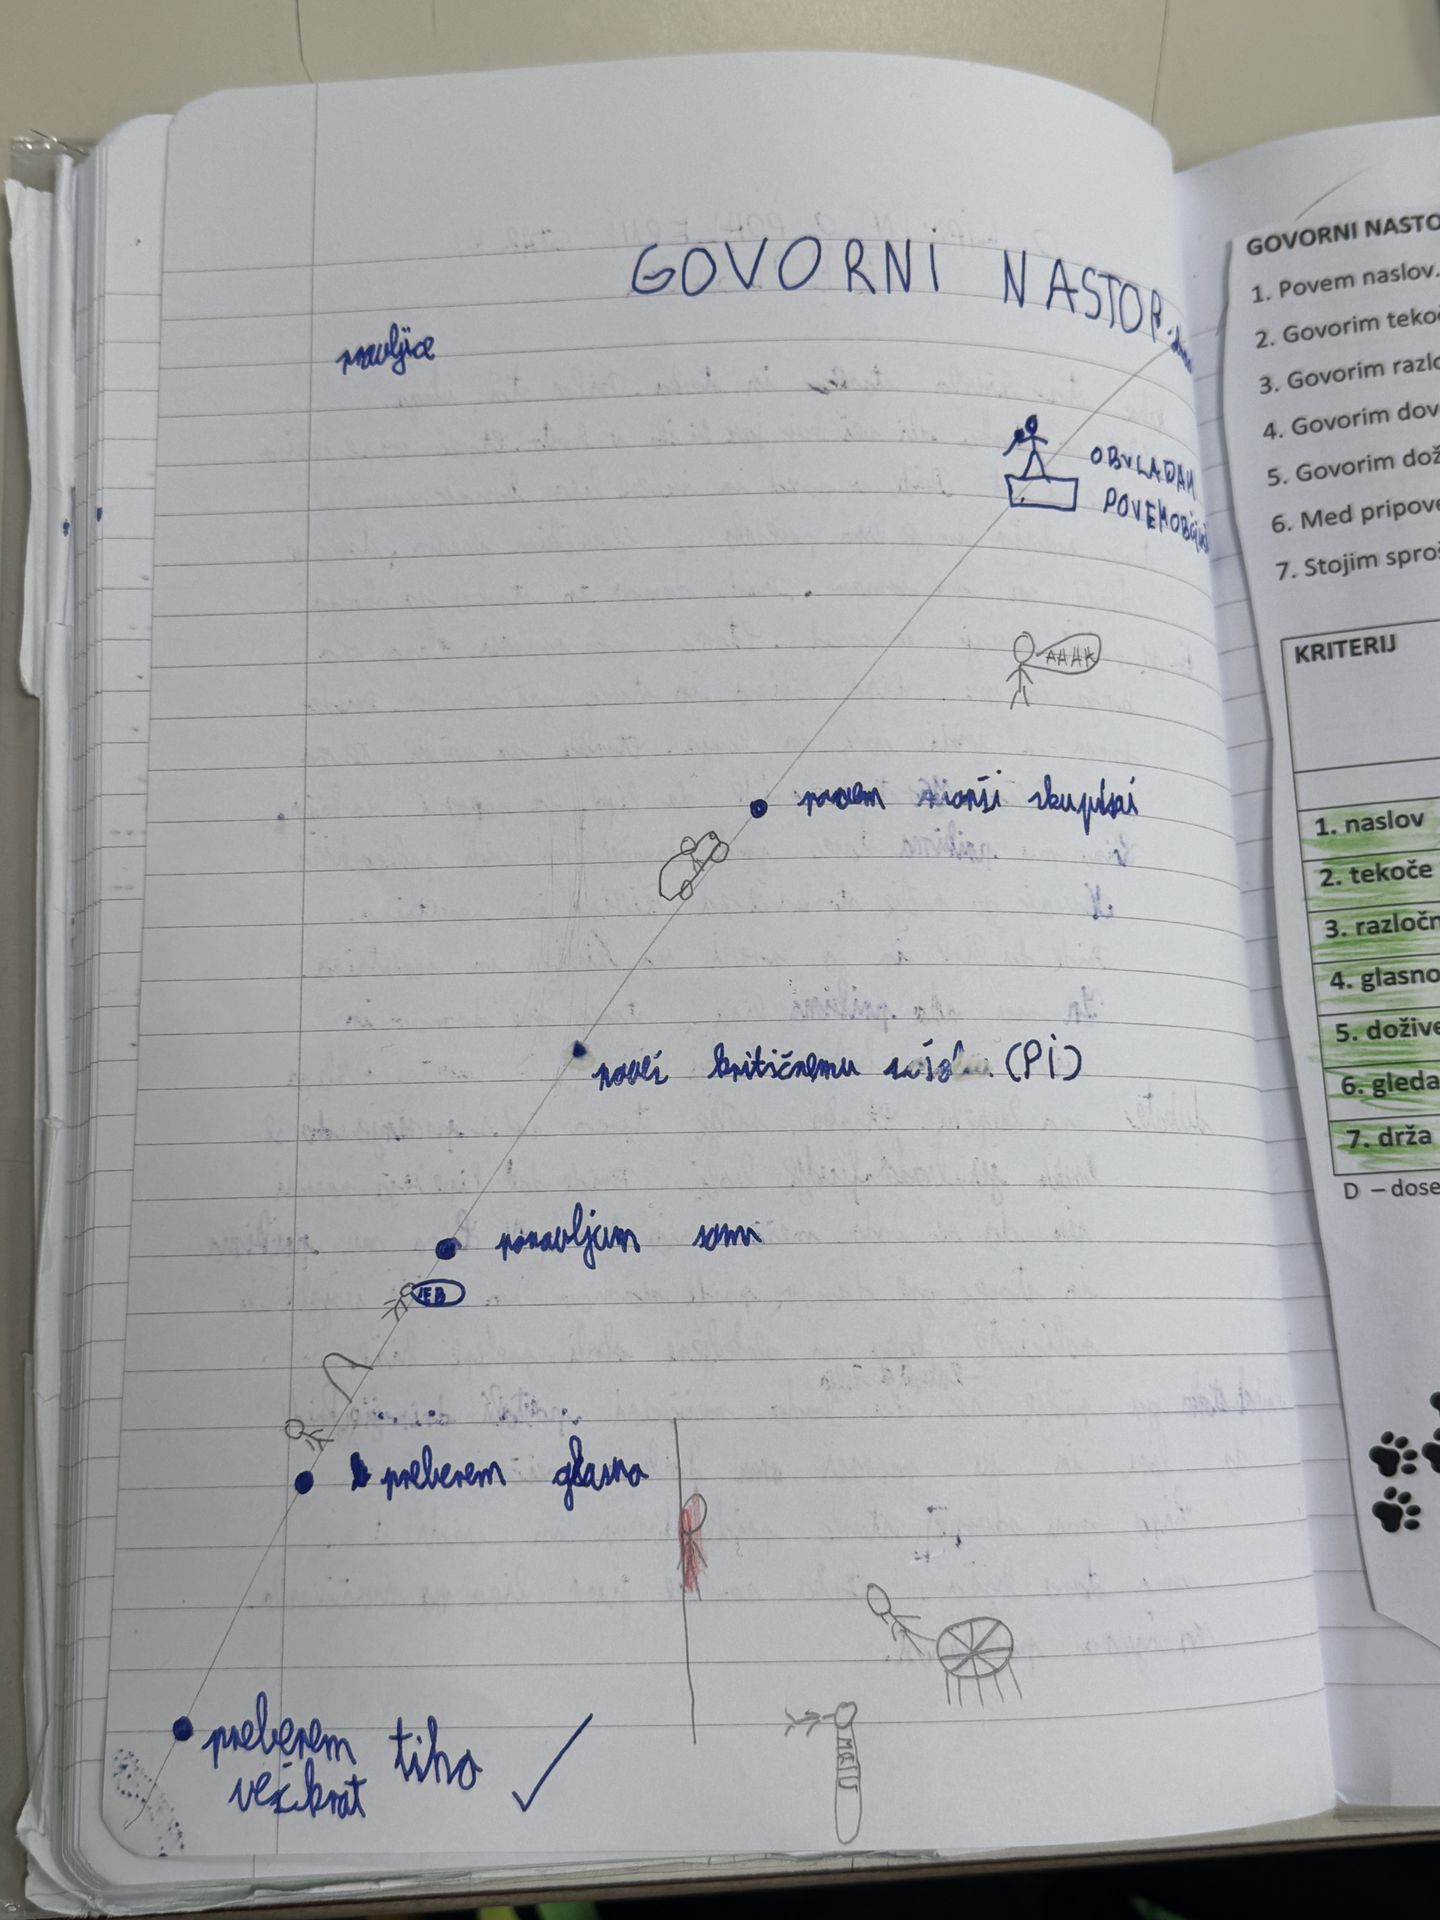 GOVORNI NASTOP
pravljice
OBVLADAM
AAAA
povem
skupini
povei kritičnemu (Pi)
ponavljam sam
preberem glasno
preberem tiho
večkrat
GOVORNI NASTO
1. Povem naslov.
2. Govorim teko
3. Govorim razlo
4. Govorim dov
5. Govorim dož
6. Med pripove
7. Stojim spro
KRITERIJ
1. naslov
2. tekoče
3. razločn
4. glasno
5. dožive
6. gleda
7. drža
D – dose